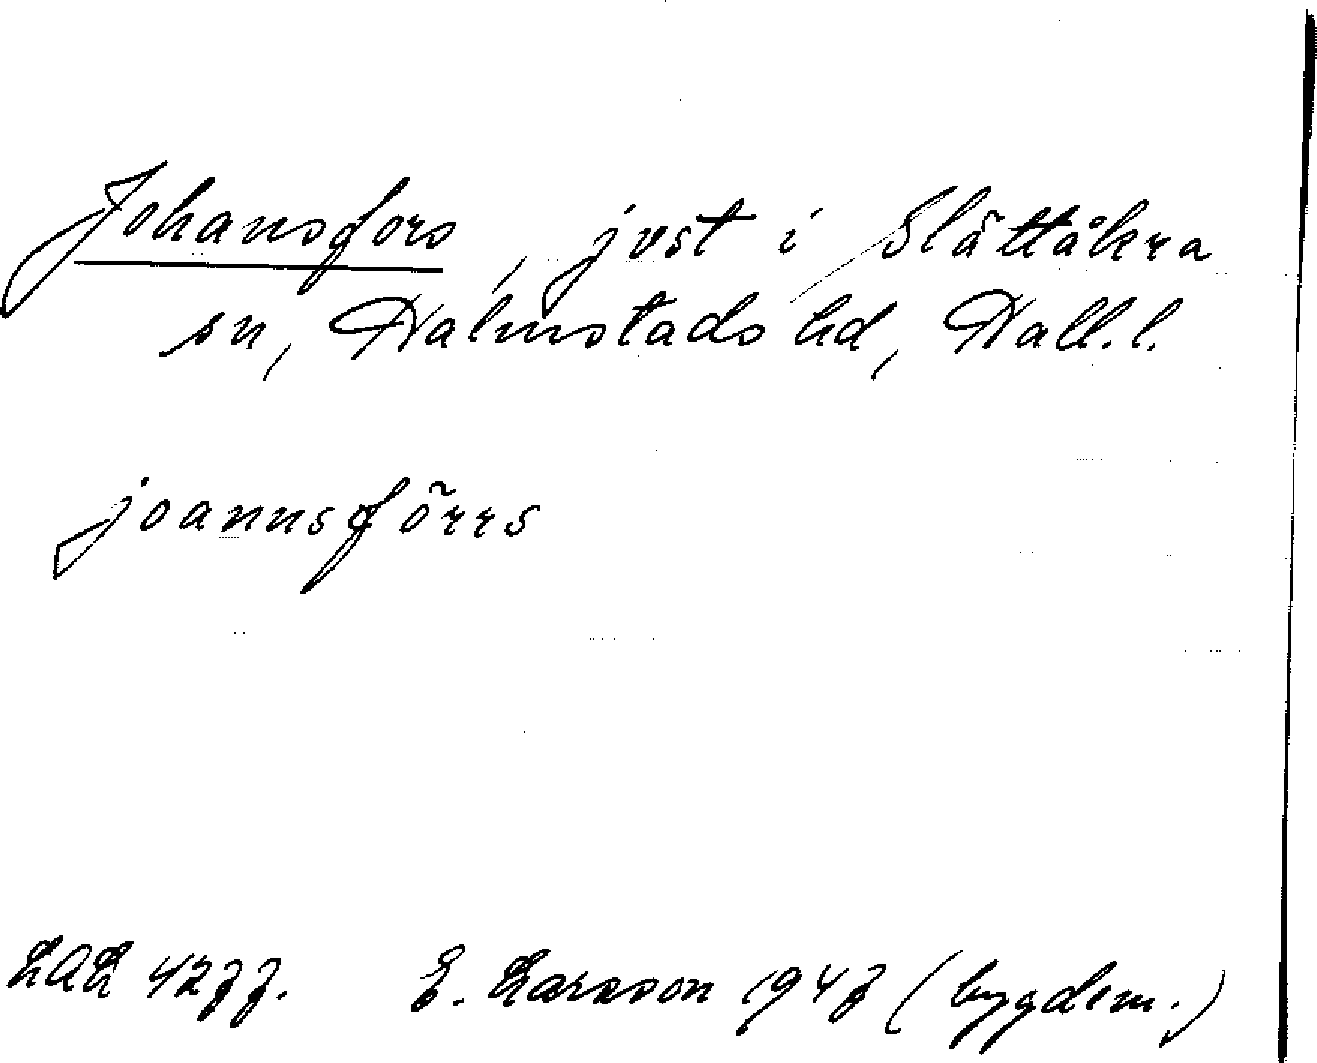 Johansfors, jvst i Slättåkra
sn, Halmstads hd, Hall.l.
joannsförrs
LAL 4277. E. Larsson 1947 (bygdem.)